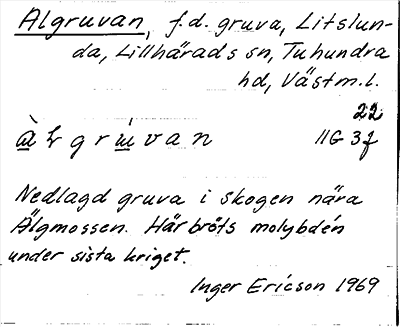 Älgruvan, f.d. gruva, Litslun-
da, Lillhärads sn, Tuhundra
hd, Västm.l.
22
11G 3f
Nedlagd gruva i skogen nära
Älgmossen. Här bröts molybdén
under sista kriget.
Inger Ericson 1969